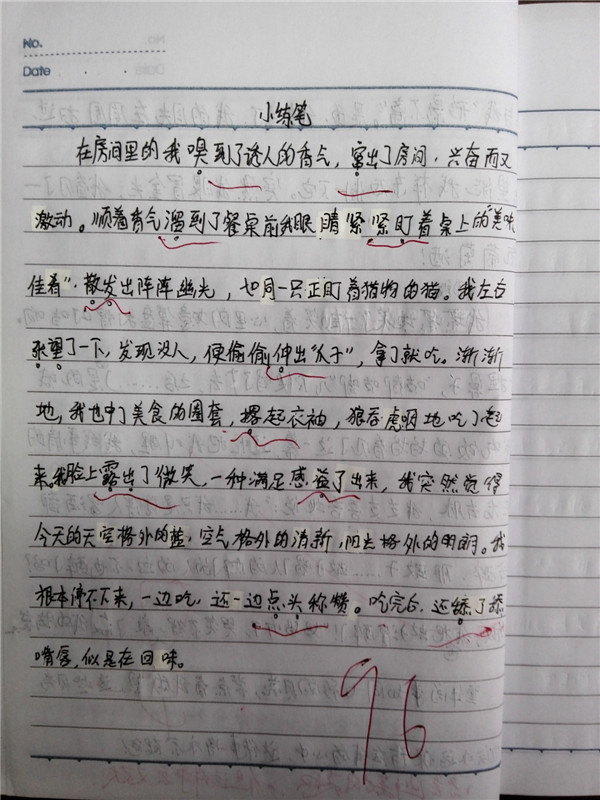 No.
Date
小练笔
在房间里的我嗅到了诱人的香气，窜出了房间，兴奋而又
激动。顺着香气溜到了餐桌前我眼睛紧紧盯着桌上的“美味
佳肴”，散发出阵阵幽光，如同一只正盯着猎物的猫。我左右
张望了一下，发现没人，便偷偷伸出“爪子”，拿了就吃。渐渐
地，我也中了美食的圈套，撂起衣袖，狼吞虎咽地吃了起
来。我脸上露出了微笑，一种满足感溢了出来，我突然觉得
今天的天空格外的蓝，空气格外的清新，阳光格外的明朗。我
根本停不下来，一边吃，还一边点头称赞。吃完后，还舔了舔
嘴唇，似是在回味。
96